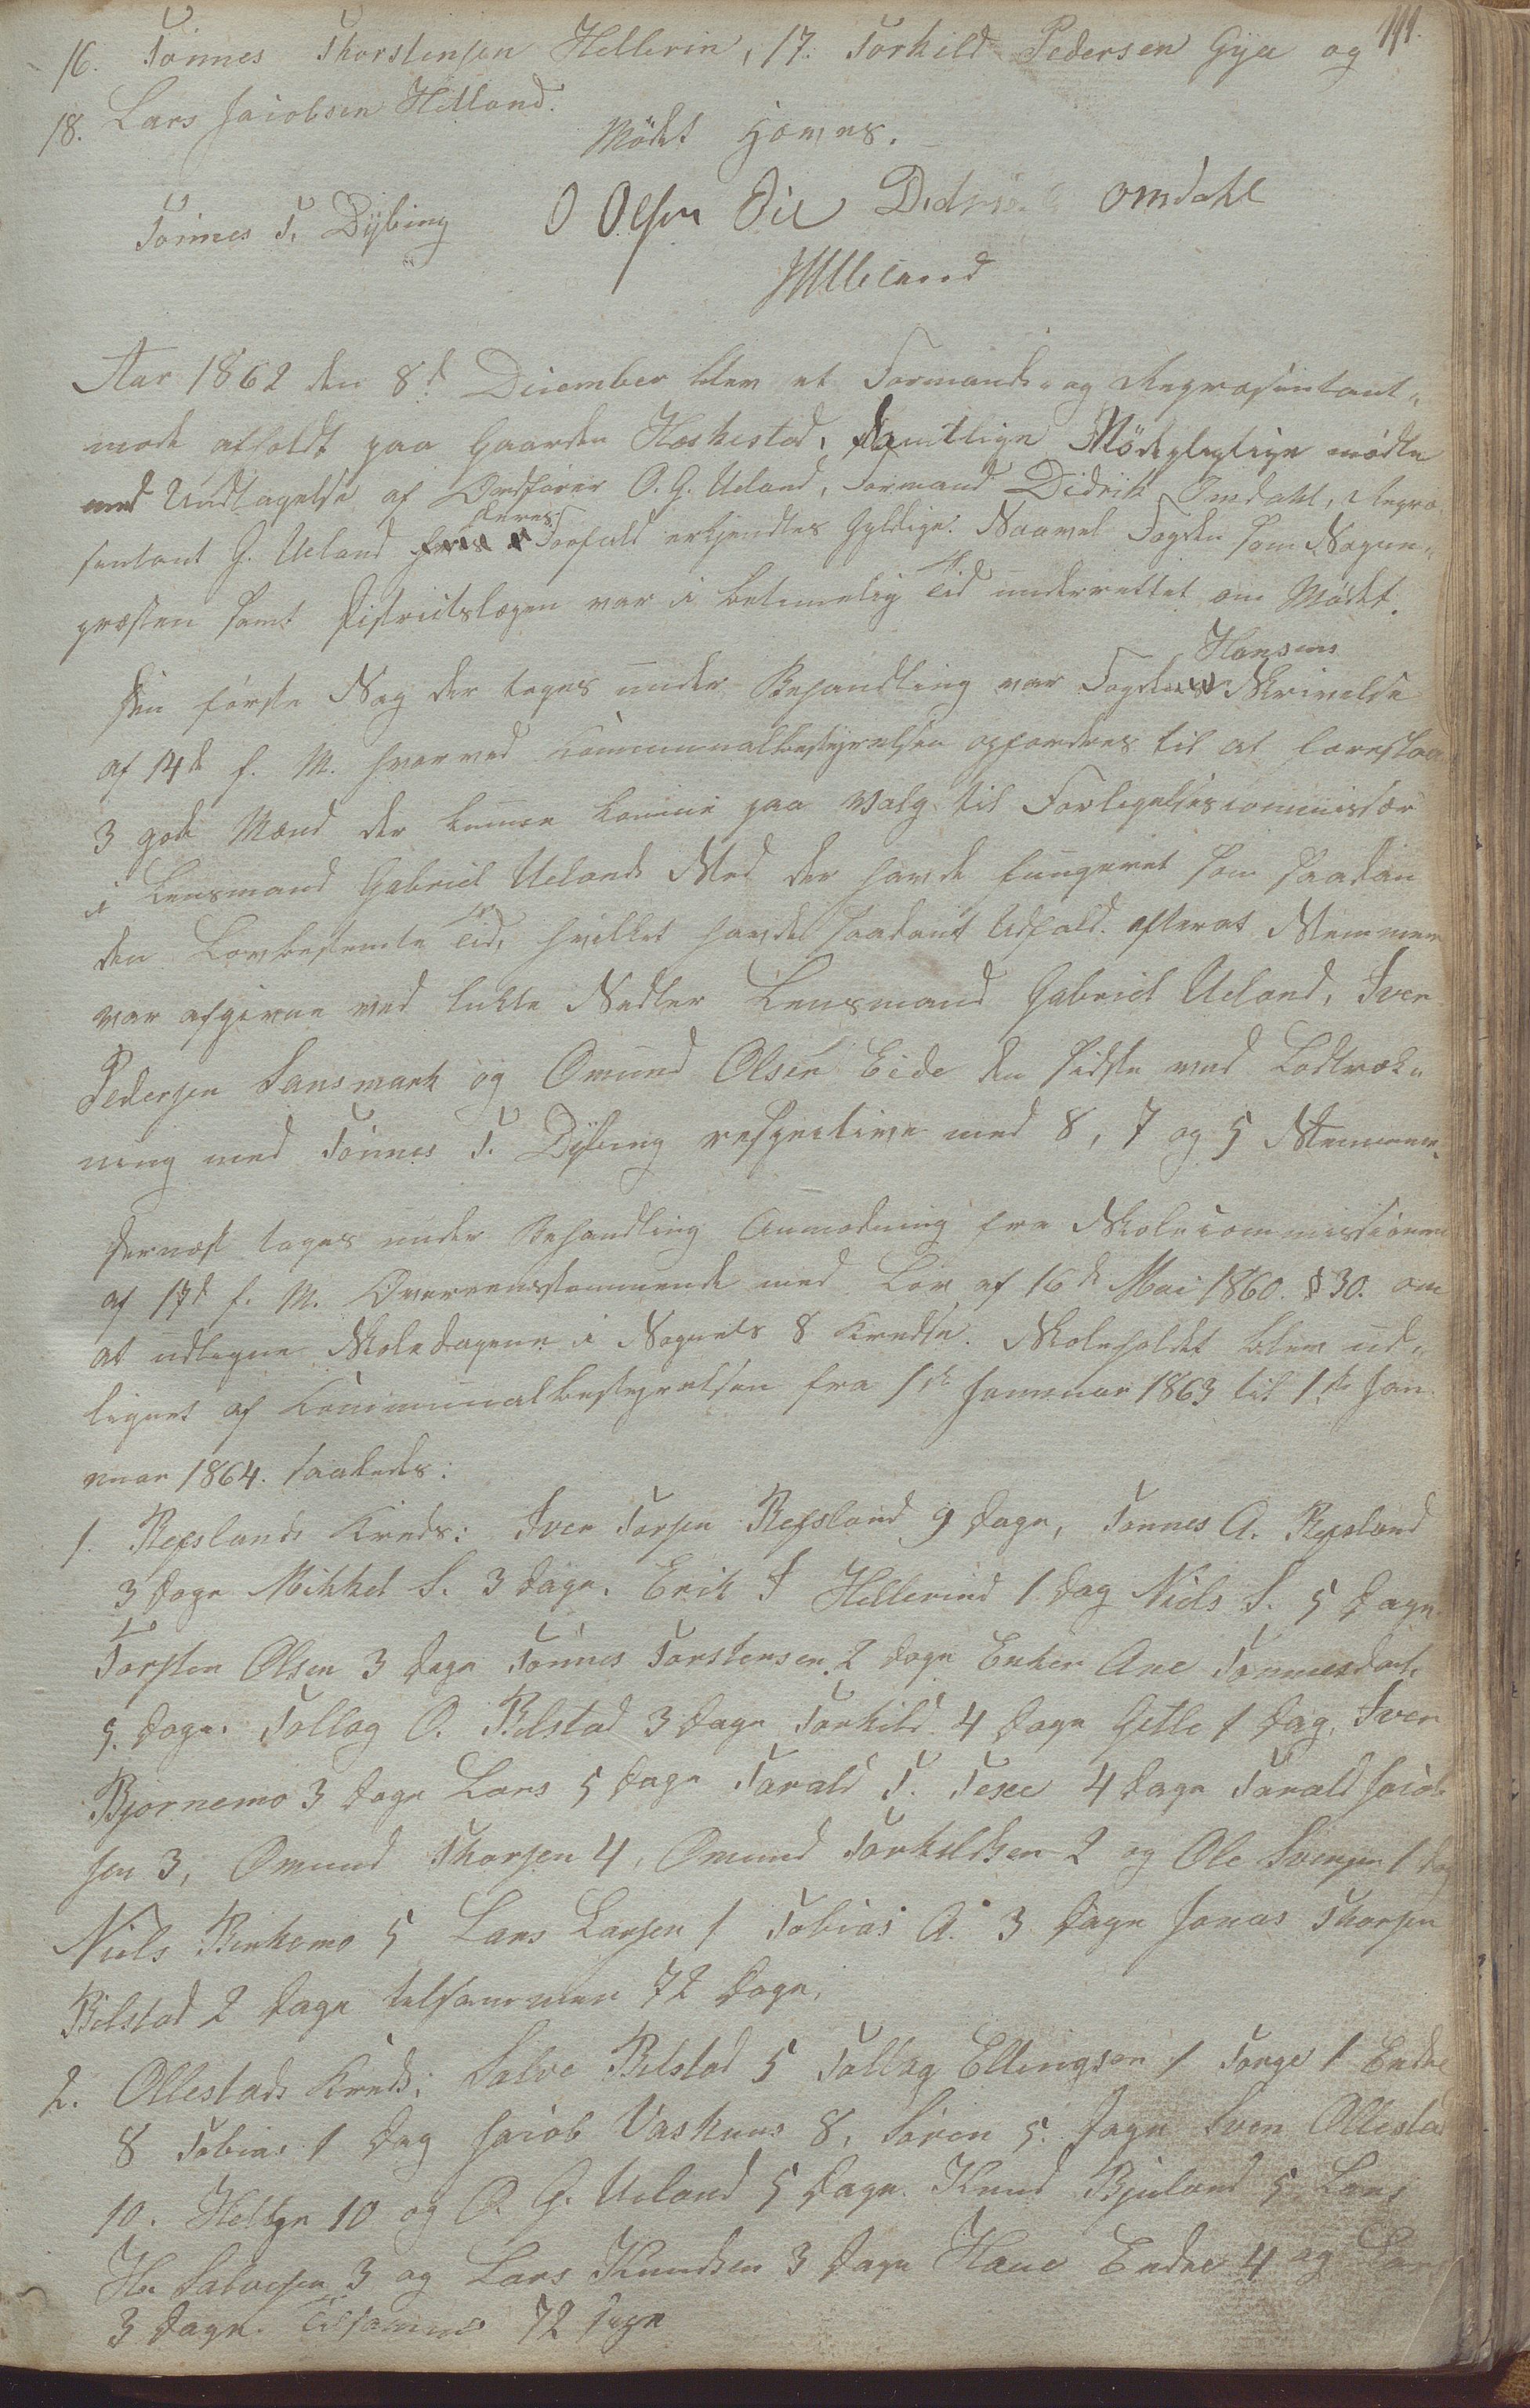 111.
16. Tönnes Thorstensen Hellerin, 17. Torkild Pedersen Gyee og
18. Lars Jacobsen Helland.
Mødet hæves.
Tönnes T. Dÿbing O Olsen Eie Didrik Omdahl
Aar 1862 den 8d December blev et Formands- og Repræsentant-
møde afholdt paa Gaarden Heskestad, samtlige Mødepligtige mødte
med Undtagelse af Ordfører O. G. Ueland, Formand Didrik Omdahl, Repræ
sentant G. Ueland deres Forfald erkjendtes gyldige. Saavel Fogden som Sogne-
præsten samt Distriktslægen var i betimelig Tid underrettet om Mødet.
Den første Sag der toges under Behandling var Fogden Hansens Skrivelse
af 14de f. M. hvorved Kommunalbestyrelsen opfordres til at foreslaa
3 gode Mænd der kunne komme paa Valg til Forligelsescommissær
i Lensmand Gabriel Uelands Sted der havde fungeret som saadan
den Lovbestemte Tid, hvilket havde saadant Udfald. efterat Stemmerne
var afgivne ved lukte Sedler Lensmand Gabriel Ueland, Iver
Pedersen Sansmark og Omund Olsen Eide den sidste ved Lodtræk-
ning med Tönnes T. Dybing respective med 8, 7 og 5 Stemmer.
Dernæst toges under Behandling Anmodning fra Skolecommissionen
af 17de f. M. Overeensstemmende med Lov af 16de Mai 1860. § 30. om
at udligne Skoledagene i Sognets 8 Kredse. Skoleholdet blev ud-
lignet af Kommunalbestyrelsen fra 1ste Januar 1863 til 1ste Jan
uar 1864. saaledes:
1. Refslands Kreds: Iver Torsen Refsland 9 Dage, Tönnes A. Refsland
3 Dage Mikkel S. 3 Dage. Erik T Hellerind 1 Dag Niels S. 5 Dage
Torsten Olsen 3 Dage Tönnes Torstensen 2 Dage Enken Ane Tönnesdat.
5. Dage. Tollag O. Bilstad 3 Dage Torkild 4 Dage Gitle 1 Dag, Iver
Bjørnemo 3 Dage Lars 5 Dage Tarald T. Texe 4 Dage Tarald Jacob
sen 3, Omund Thorsen 4, Omund Torkildsen 2 og Ole Svensen 1 Dag
Niels Birkemo 5 Lars Larsen 1 Tobias A. 3 Dage Jonas Thorsen
Bilstad 2 Dage tilsammen 72 Dage.
2. Ollestads Kreds: Salve Bilstad 5 Tollag Ellingsen 1 Torge 1 Endre
8 Tobias 1 Dag Jacob Vaskuus 8, Søren 5. Dage Sven Ollestad
10. Helge 10 og O. G. Ueland 5 Dage. Knud Bjuland 5. Lars
Salvesen 3 og Lars Knudsen 3 Dage Haue Endre 4 og Lars
3 Dage. Tilsammen 72 Dage